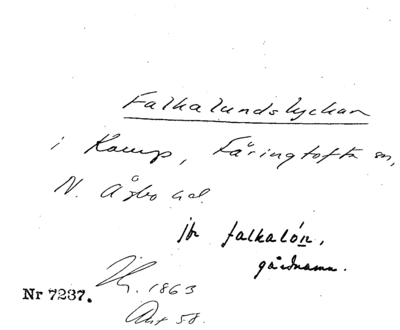 Falkalundslyckan
i Kamp, Färingtofta sn,
N. Åsbo hd.
jfr falkalón,
gårdnamn.
1863
Nr 7237.
Akt 58.